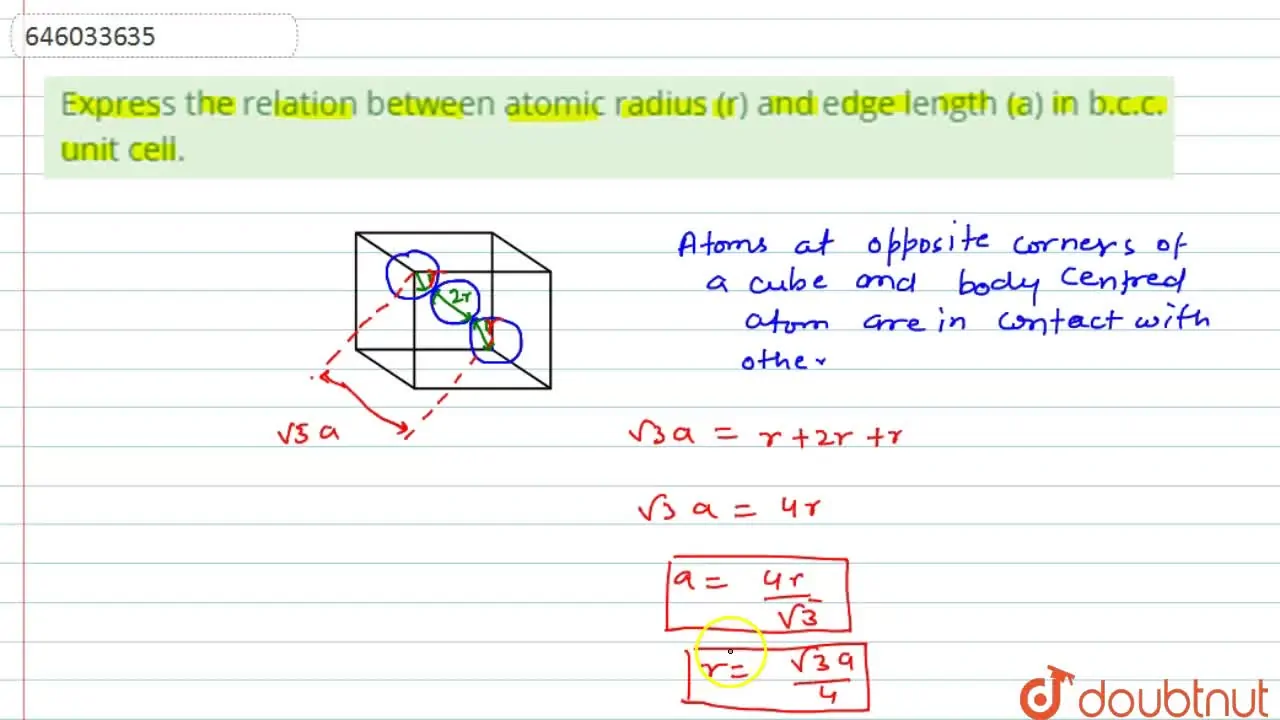 646033635
Express the relation between atomic radius (r) and edge length (a) in b.c.c.
unit cell.
Atoms at opposite corners of
a cube and body centred
atom are in contact with
other
r
2r
r
√3 a
√3 a = r + 2r + r
√3 a = 4r
a = 4r/√3
r = √3 a/4
doubtnut